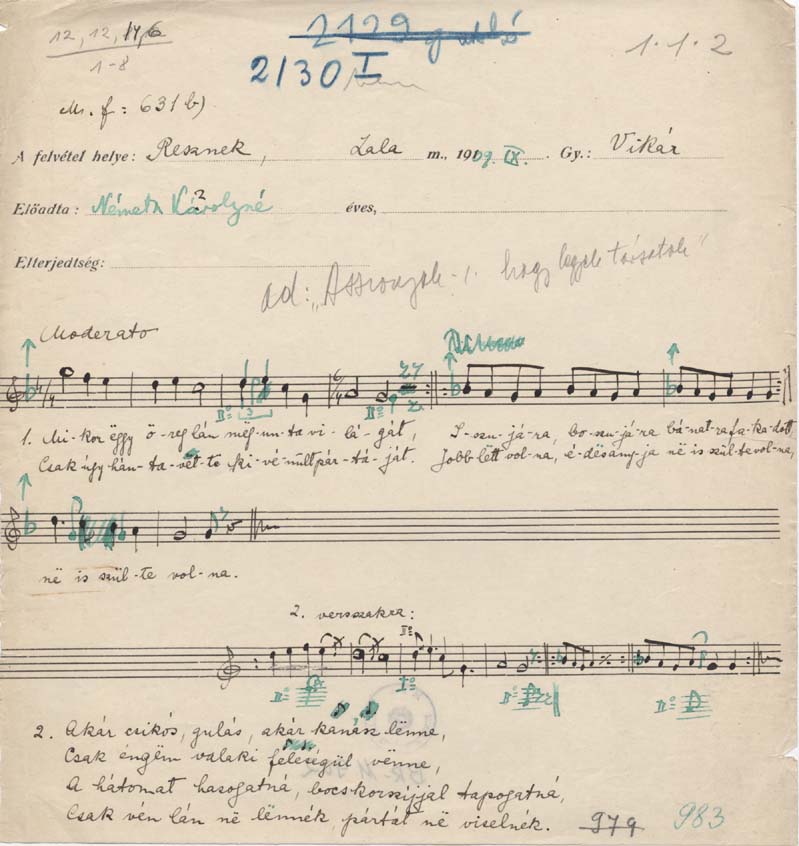 12, 12, 14, 6
1-8
2130 I
1.1.2
M. f: 631 b)
A felvétel helye: Resznek, Zala m., 1909. IX. Gy.: Vikár
Előadta: Németh Károlyné ? éves,
Elterjedtség:
ad: „Asszonyok, hogy
Moderato
1. Mi-kor ëggy ö-reg lán mëg-un-ta vi-lá-gát, I-szu-já-ra, bo-szu-já-ra bá-nat-ra fa-ka-dott,
Csak úgy hán-ta-vet-te ki-vé-nűlt pár-tá-ját. Jobb lëtt vol-na, é-dësany-ja në is szül-te vol-na,
në is szül-te vol-na.
2. versszakra:
2. Akár csikós, gulás, akár kanász lënne,
Csak éngëm valaki feleségül vënne,
A hátomat hasogatná, bocskorszíjjal tapogatná,
Csak vén lán në lënnék, pártát në viselnék.
979 983